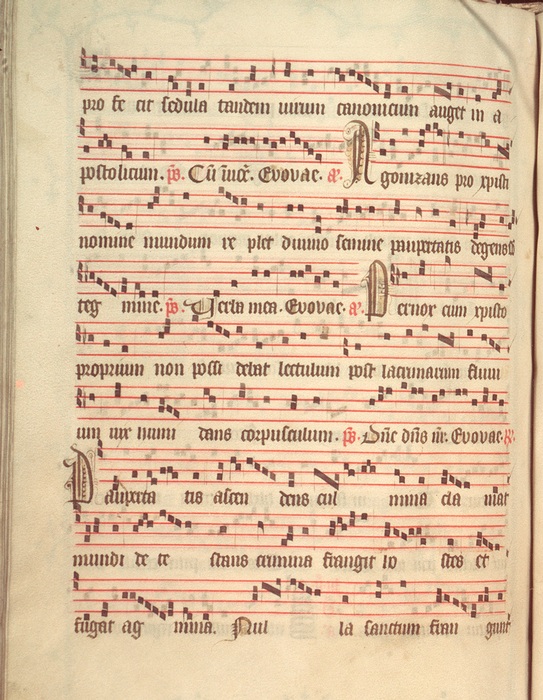 pro fe cit sedula tandem uirum canonicum auget in a
postolicum. ps. Cū īuoc̄. Evovae. a. Agonizans pro xpisti
nomine mundum re plet diuino semine paupertatis degens
teg mine. ps. Uerba mea. Evovae. a. Pernox cum xpisto
proprium non possi debat lectulum post lacrimarum fluui
um uix humi dans corpusculum. ps. Dn̄e dn̄s nr̄. Evovae. R.
Paupertatis ascen dens cul mina cla mat
mundi de te stans crimina frangit ho stes et
fugat ag mina. Nul la sanctum fran gunt